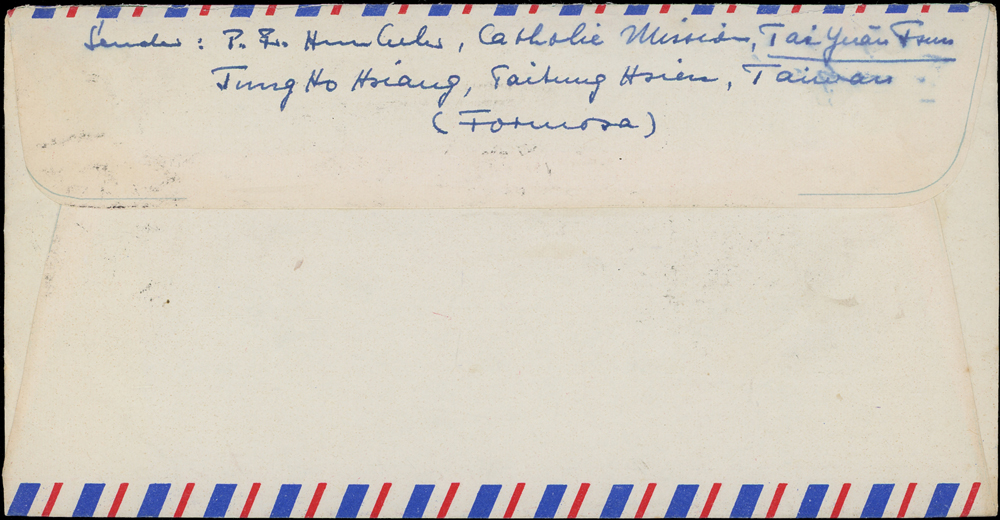 Sender: P. L. Hunkeler, Catholic Mission, Tai Yuan Tsun
Tung Ho Hsiang, Taitung Hsien, Taiwan
(Formosa)